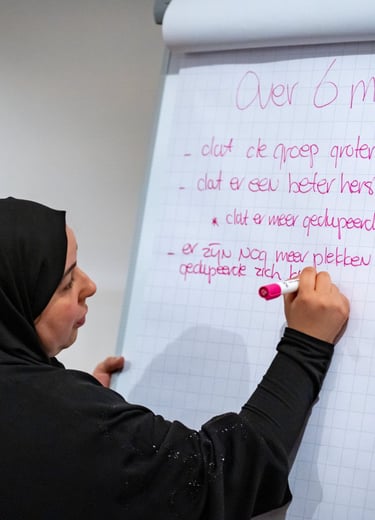 Over 6 m
- dat de groep groter
- dat er een beter hers
* dat er meer gedupeerd
- er zijn nog meer plekken
gedupeerde zich b